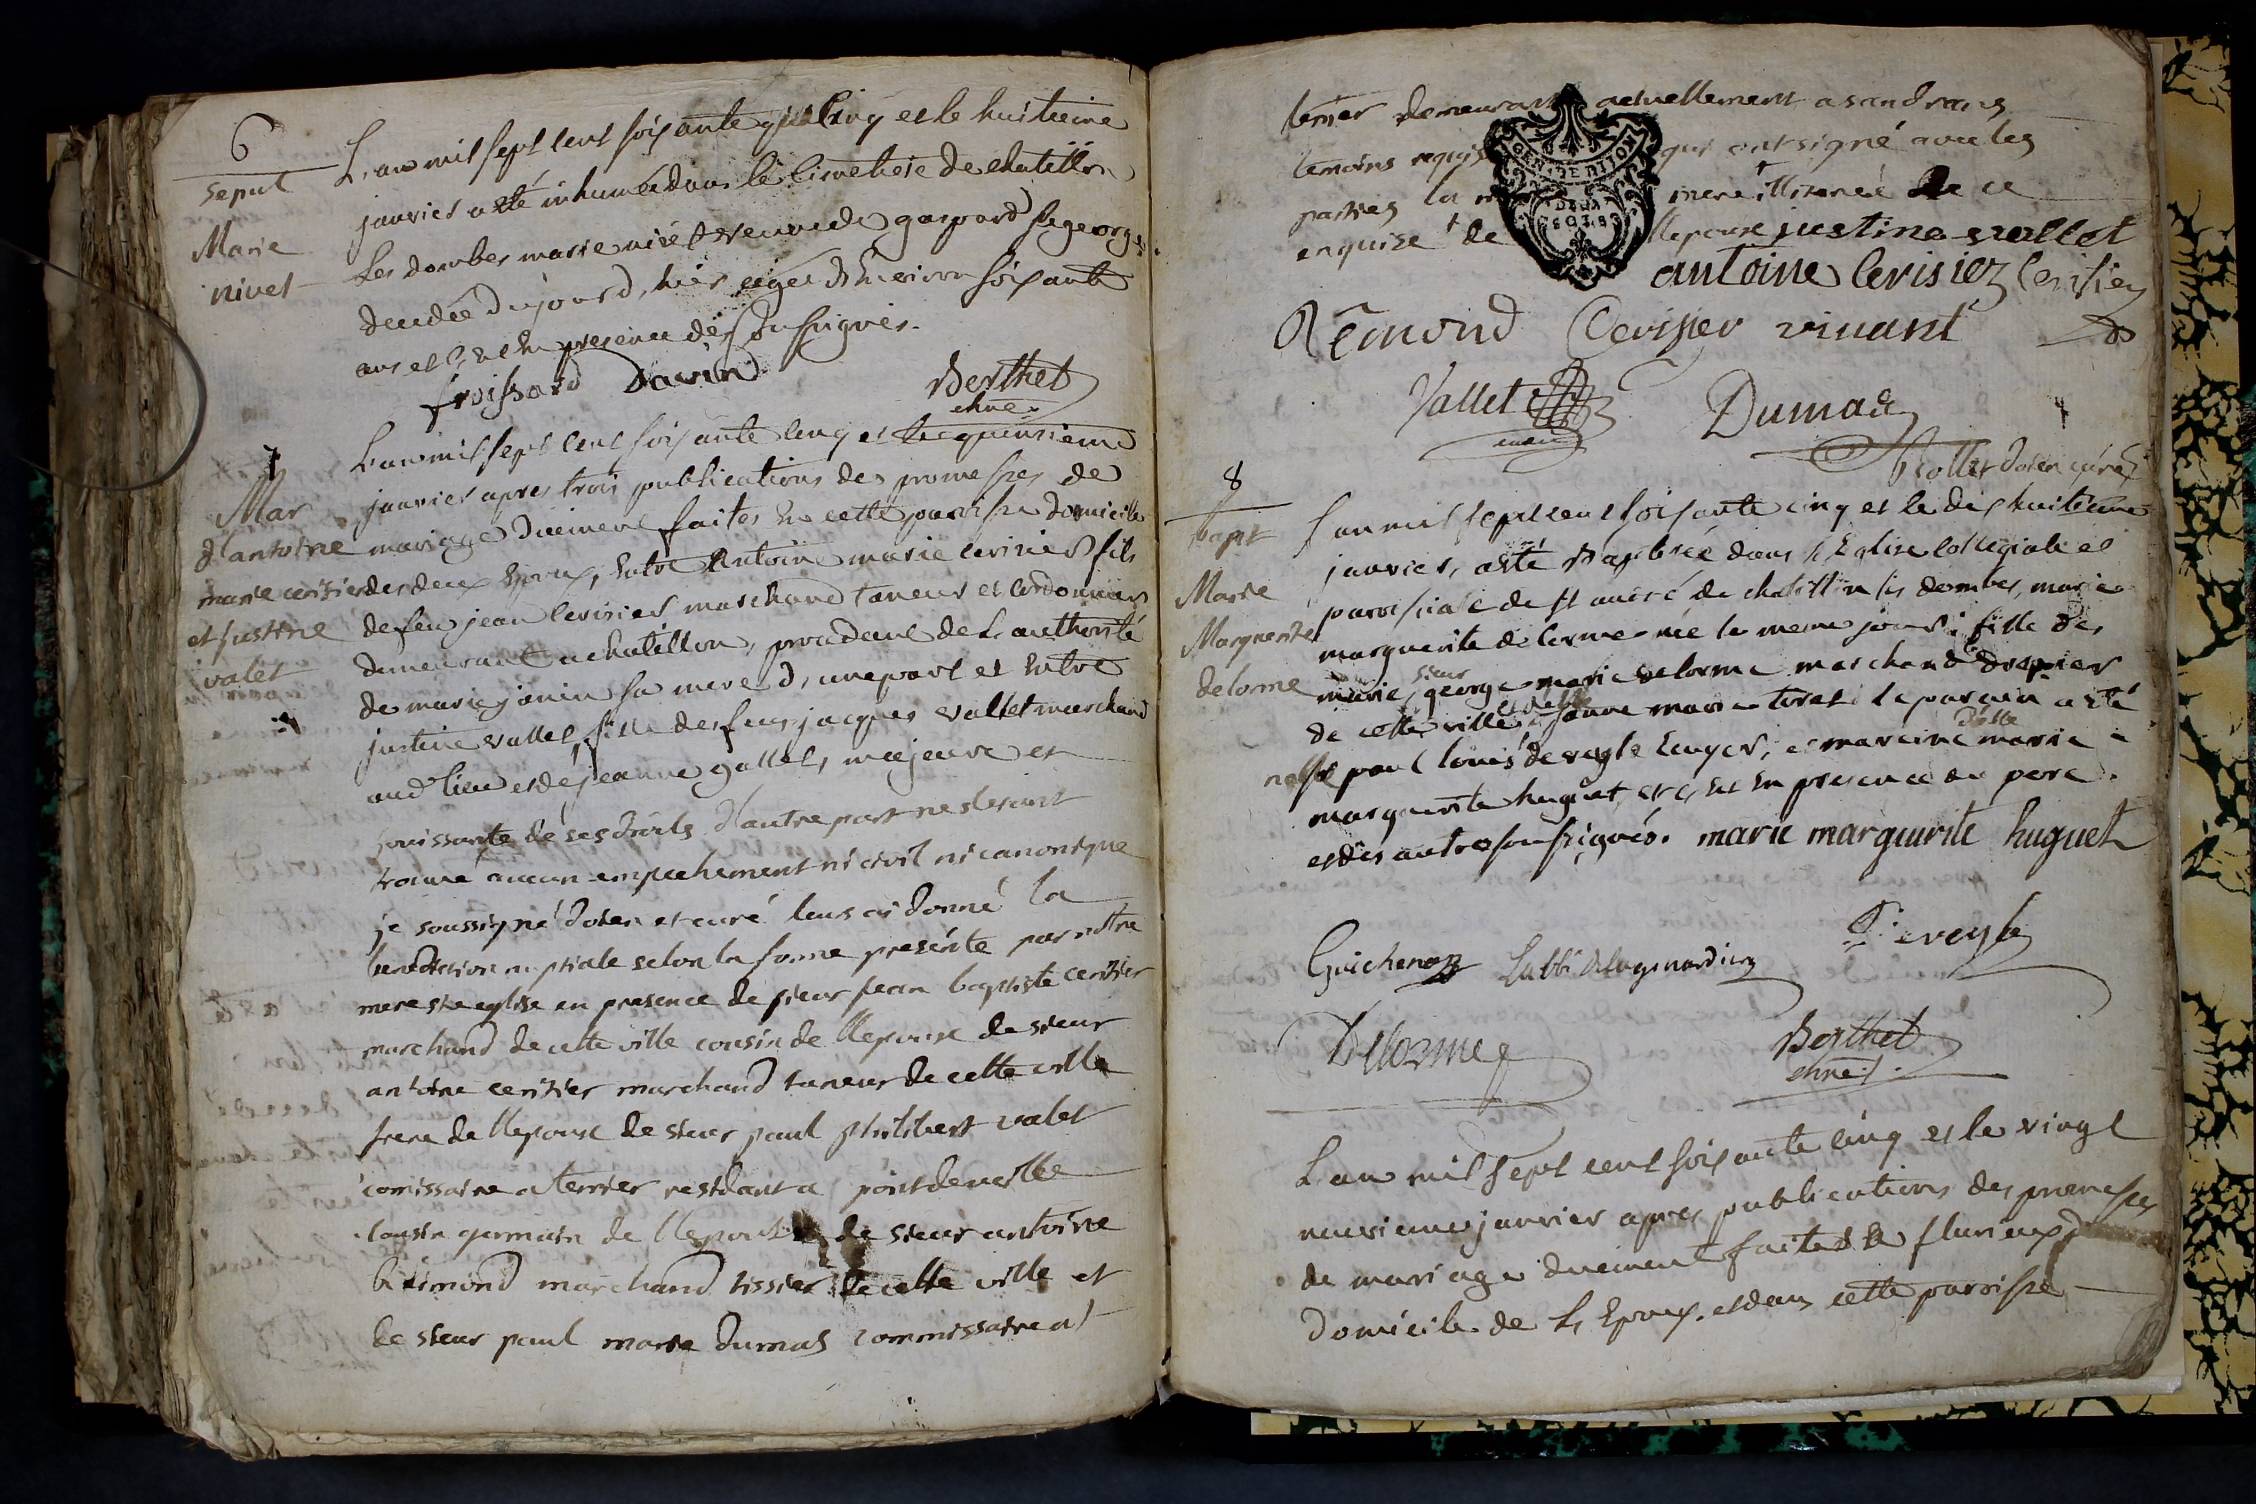 6
Sepul
Marie
nivet
L'an mil sept cent soixante cinq et le huitieme
janvier a été inhumée dans le Cimetiere de chatillon
Les dombes marie nivet veuve de gaspard
decedée d'ejourd'hier agée d'Environ soixante
ans et c'est En presence des soussignés.
froissard Davin Berthet
chne
7
Mar
d'antoine
marie cerisier
et justine
valet
L'an mil sept cent soixante cinq et le quinzieme
janvier apres trois publications des promesses de
mariage duement faites En cette paroisse domicile
des deux Epoux, Entre Antoine marie cerisier fils
de feu jean cerisier marchand taneur et cordonnier
demeurant a chatillon, procedant de L'authorité
de marie janin sa mere d'une part et Entre
justine vallet fille des feus jacques vallet marchand
aud' lieu et de jeanne gallet, majeure et
jouissante de ses droits d'autre part ne s'etant
trouvé aucun empechement ni civil ni canonique
je soussigné doien et curé leurs ai donné la
benediction nuptiale selon la forme presérite par notre
mere ste eglise en presence de sieur jean baptiste cerisier
marchand de cette ville cousin de l'lepoux de sieur
antoine cerisier marchand taneur de cette ville
frere de l'lepoux de sieur paul philibert valet
comissaire a terrier residant a pontdeveille
cousin germain de l'lepouse de sieur antoine
Rémond marchand tissier de cette ville et
de sieur paul marie dumas commissaire a
terrier demeurant actuellement a sandrans
temoins requis qui ont signé avec les
parties la mere illiterée de ce
enquise de l'lepoux justine vallet
antoine Cerisiez Cerisier
Rémond Cerisier vivant
Vallet Dumas
Doien curé
8
bapt
Marie
Marguerite
delorme
L'an mil sept cent soixante cinq et le dix huitieme
janvier, a été Baptisée dans L'Eglise Collegiale et
paroissiale de st andré de chatillon les dombes, marie
marguerite delorme née le meme jour, fille de
marie, sieur george marie delorme marchand drapier
de cette ville et de dlle jeanne marie toret. le parrain a été
paul louis deveyle Ecuyer, et maraine dslle marie
marguerite huguet, et c'est En presence du pere
et des autres soussignés. marie marguerite huguet
Guichenon Labbé Delagenardiere Deveyle
Delorme Berthet
chne
L'an mil sept cent soixante cinq et le vingt
neuvieme janvier apres publications des promesses
de mariage duement faites a flurieux
domicile de L'Epoux. et dans cette paroisse